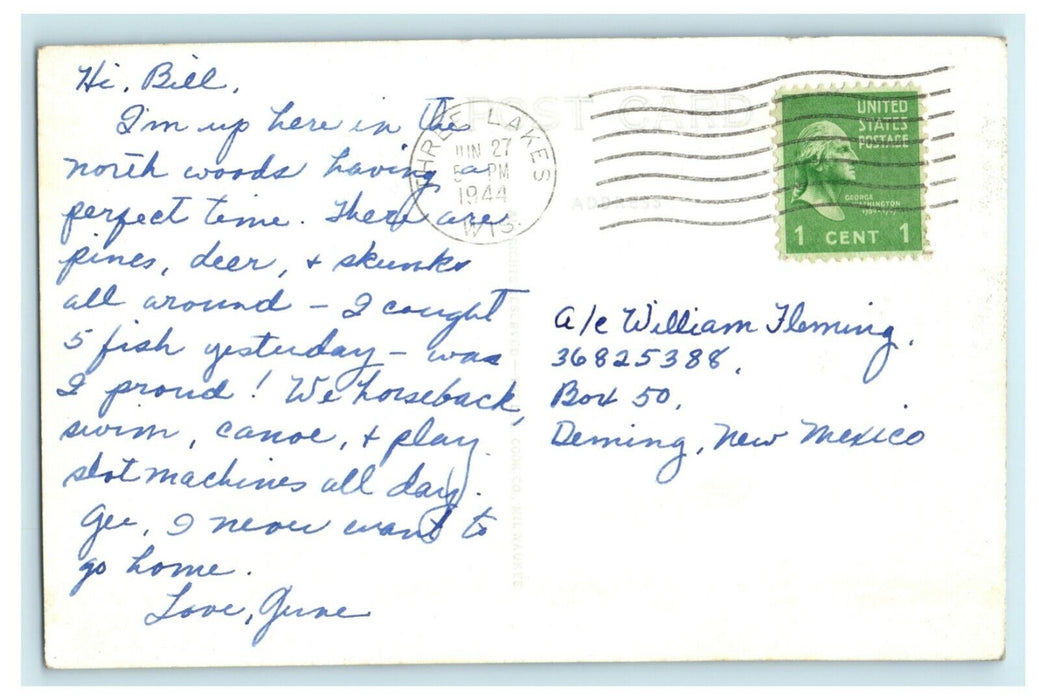 Hi, Bill,
I'm up here in the
north woods having a
perfect time. There are
pines, deer, + skunks
all around – I caught
5 fish yesterday – was
I proud! We horseback,
swim, canoe, + play
slot machines all day.
Gee, I never want to
go home.
Love, June
POST CARD
ADDRESS
THREE LAKES
JUN 27
5 PM
1944
WIS.
UNITED
STATES
POSTAGE
GEORGE
WASHINGTON
1 CENT 1
a/c William Fleming.
36825388,
Box 50,
Deming, New Mexico
CO., MILWAUKEE